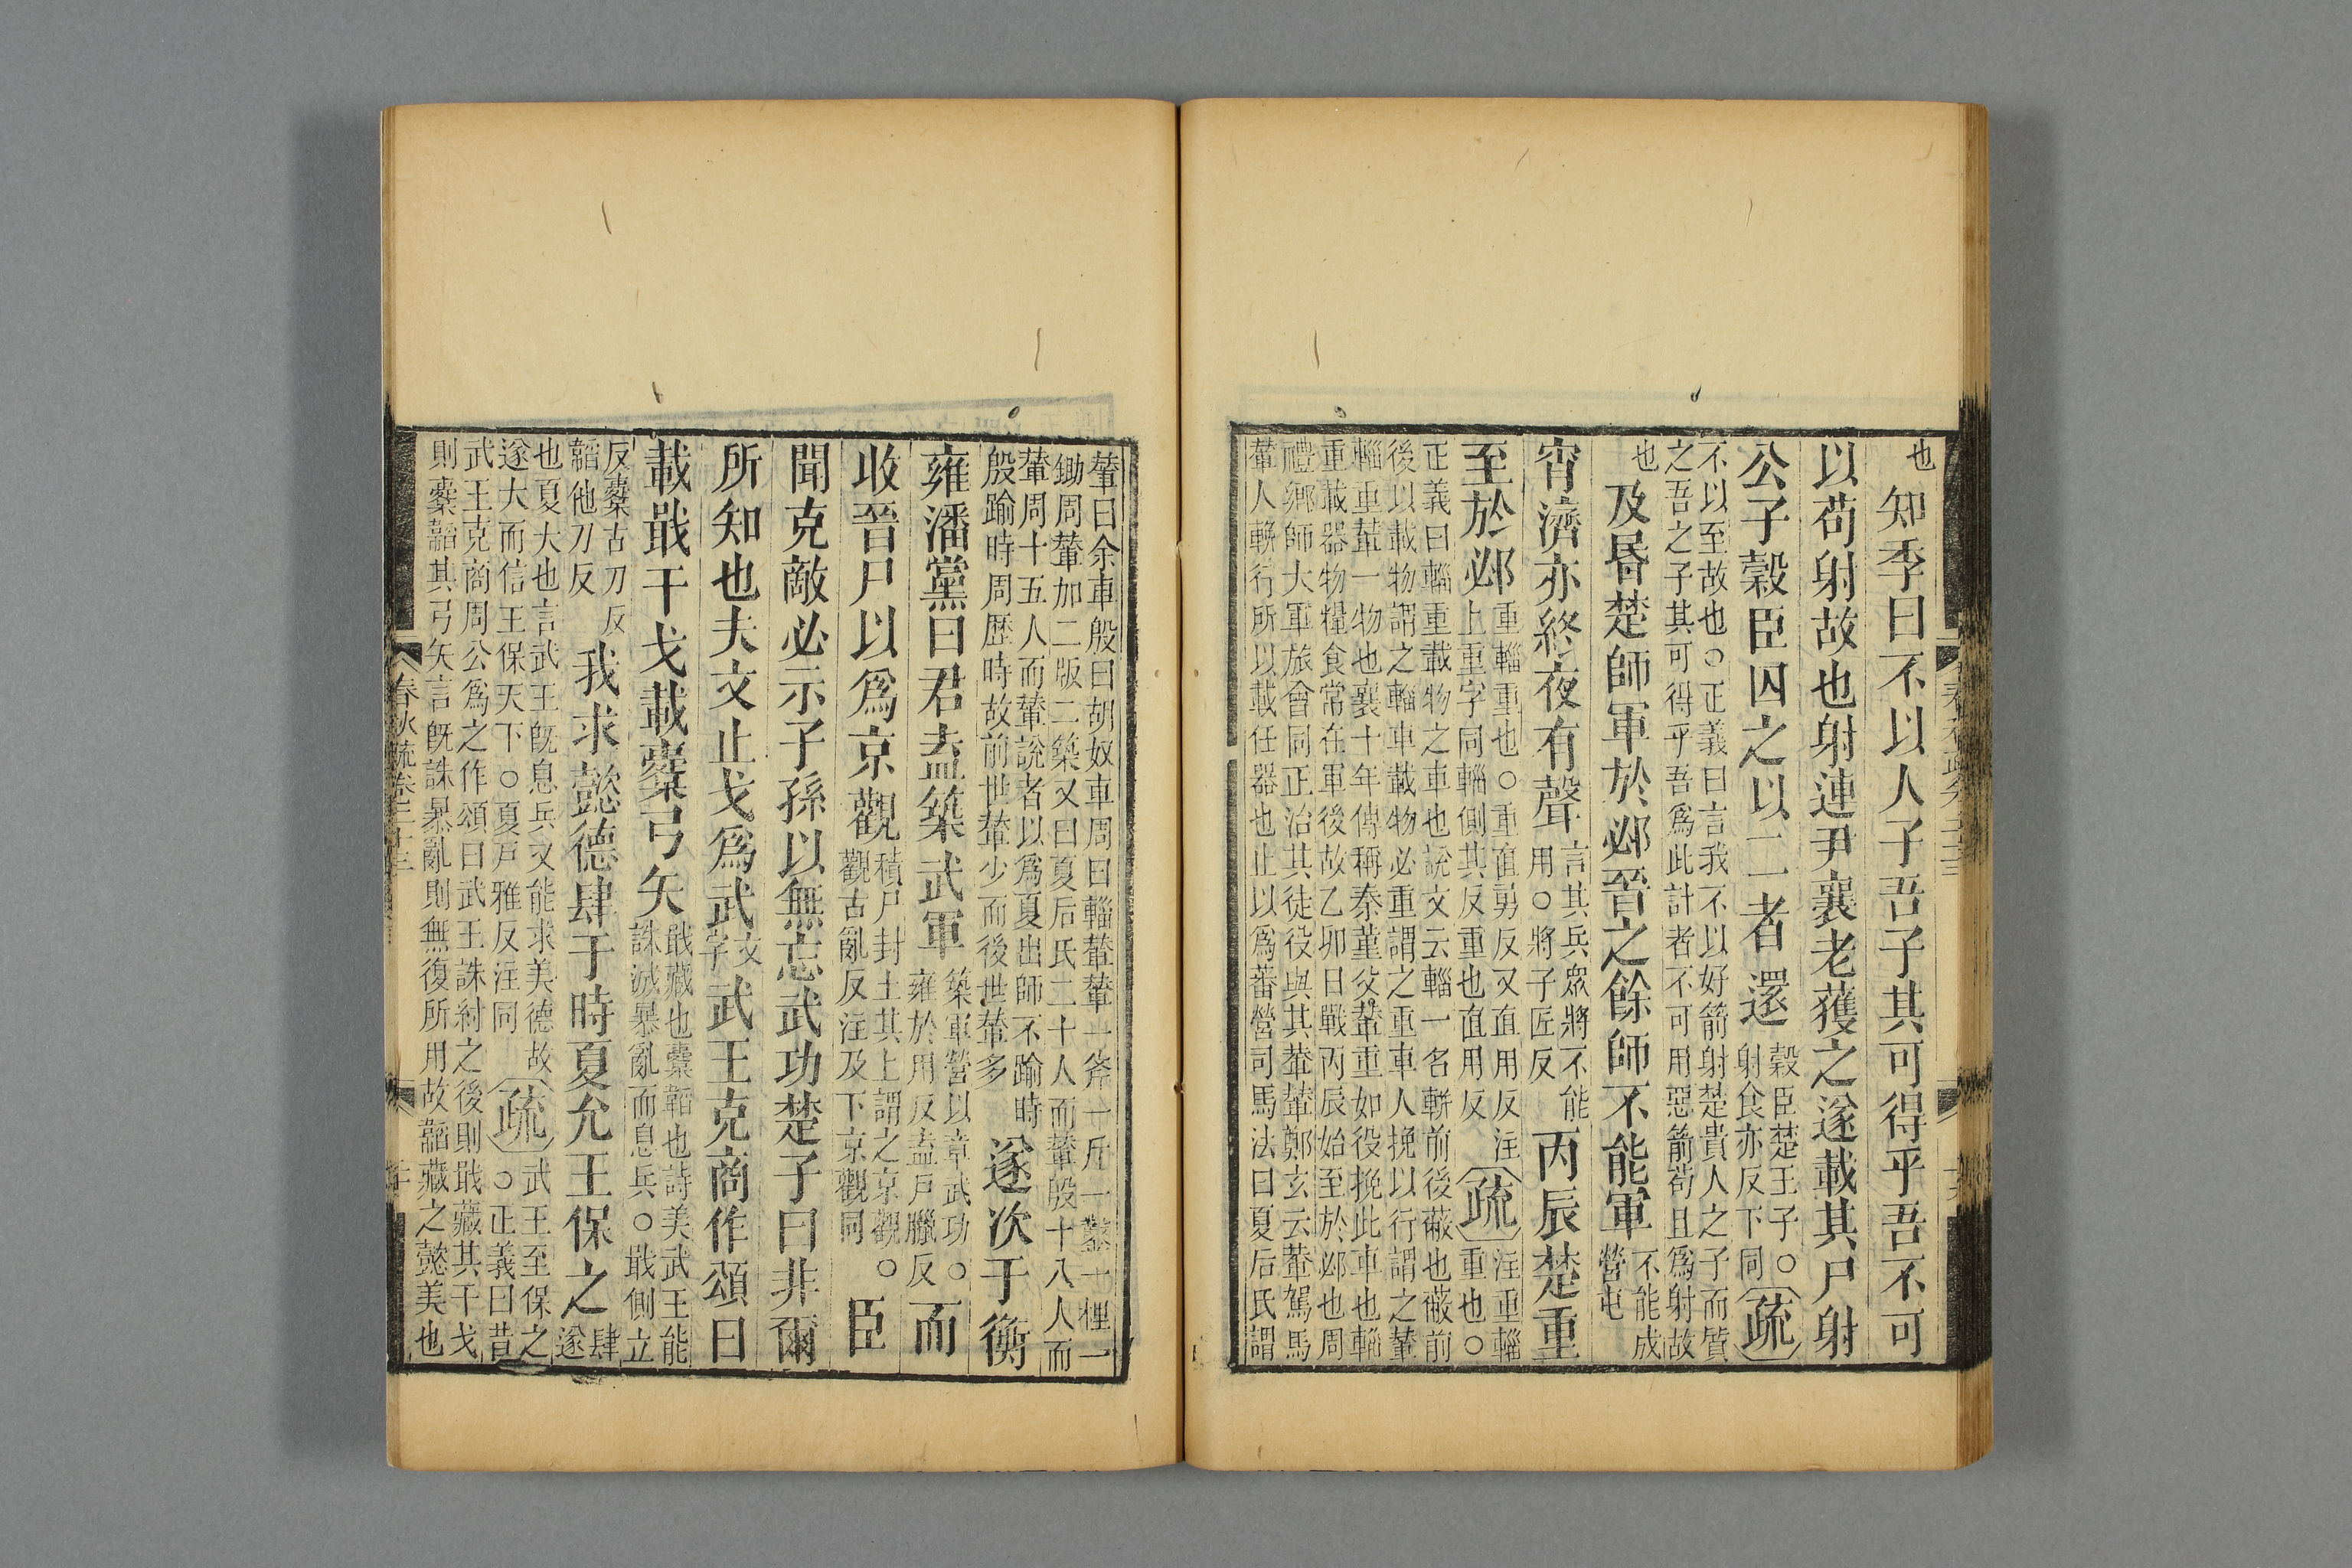 也 知季曰不以人子吾子其可得乎吾不可
以苟射故也射連尹襄老獲之遂載其尸射
公子穀臣囚之以二者還 穀臣楚王子○
射食亦反下同 疏
不以至故也○正義曰言我不以好箭射楚貴人之子而質
之吾之子其可得乎吾爲此計者不可用惡箭苟且爲射故
也 及昬楚師軍於邲晉之餘師不能軍 不能成
營屯
宵濟亦終夜有聲 言其兵眾將不能
用○將子匠反 丙辰楚重
至於邲 重輜重也○重直勇反又直用反注
上重字同輜側其反重也直用反 疏 注重輜
重也○
正義曰輜重載物之車也說文云輜一名軿前後蔽也蔽前
後以載物謂之輜車載物必重謂之重車人挽以行謂之輦
輜重輦一物也襄十年傳稱秦堇父輦重如役挽此車也輜
重載器物糧食常在軍後故乙卯日戰丙辰始至於邲也周
禮鄉師大軍旅會同正治其徒役與其輂輦鄭玄云輂駕馬
輦人輓行所以載任器也止以爲蕃營司馬法曰夏后氏謂
輦曰余車殷曰胡奴車周曰輜輦輦一斧一斤一鑿一梩一
鋤周輦加二版二築又曰夏后氏二十人而輦殷十八人而
輦周十五人而輦說者以爲夏出師不踰時
殷踰時周歷時故前世輦少而後世輦多 遂次于衡
雍潘黨曰君盍築武軍 築軍營以章武功○
雍於用反盍戶臘反 而
收晉尸以爲京觀 積尸封土其上謂之京觀○
觀古亂反注及下京觀同 臣
聞克敵必示子孫以無忘武功楚子曰非爾
所知也夫文止戈爲武 文
字 武王克商作頌曰
載戢干戈載櫜弓矢 戢藏也櫜韜也詩美武王能
誅滅暴亂而息兵○戢側立
反櫜古刀反
韜他刀反 我求懿德肆于時夏允王保之 肆
遂
也夏大也言武王旣息兵又能求美德故
遂大而信王保天下○夏戶雅反注同 疏 武王至保之
○正義曰昔
武王克商周公爲之作頌曰武王誅紂之後則戢藏其干戈
則櫜韜其弓矢言旣誅暴亂則無復所用故韜藏之懿美也
春秋疏卷二十三